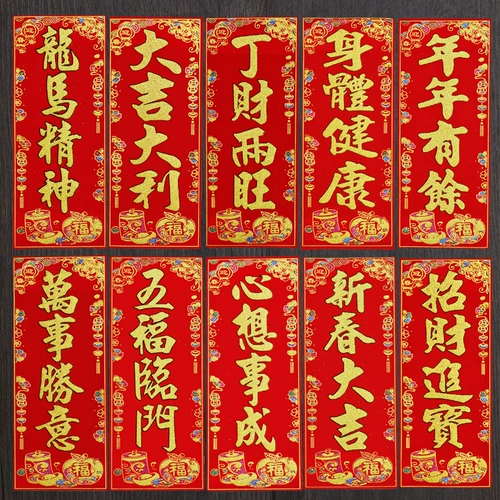 龍馬精神
大吉大利
丁財兩旺
身體健康
年年有餘
福
福
福
福
福
萬事勝意
五福臨門
心想事成
新春大吉
招財進寶
福
福
福
福
福